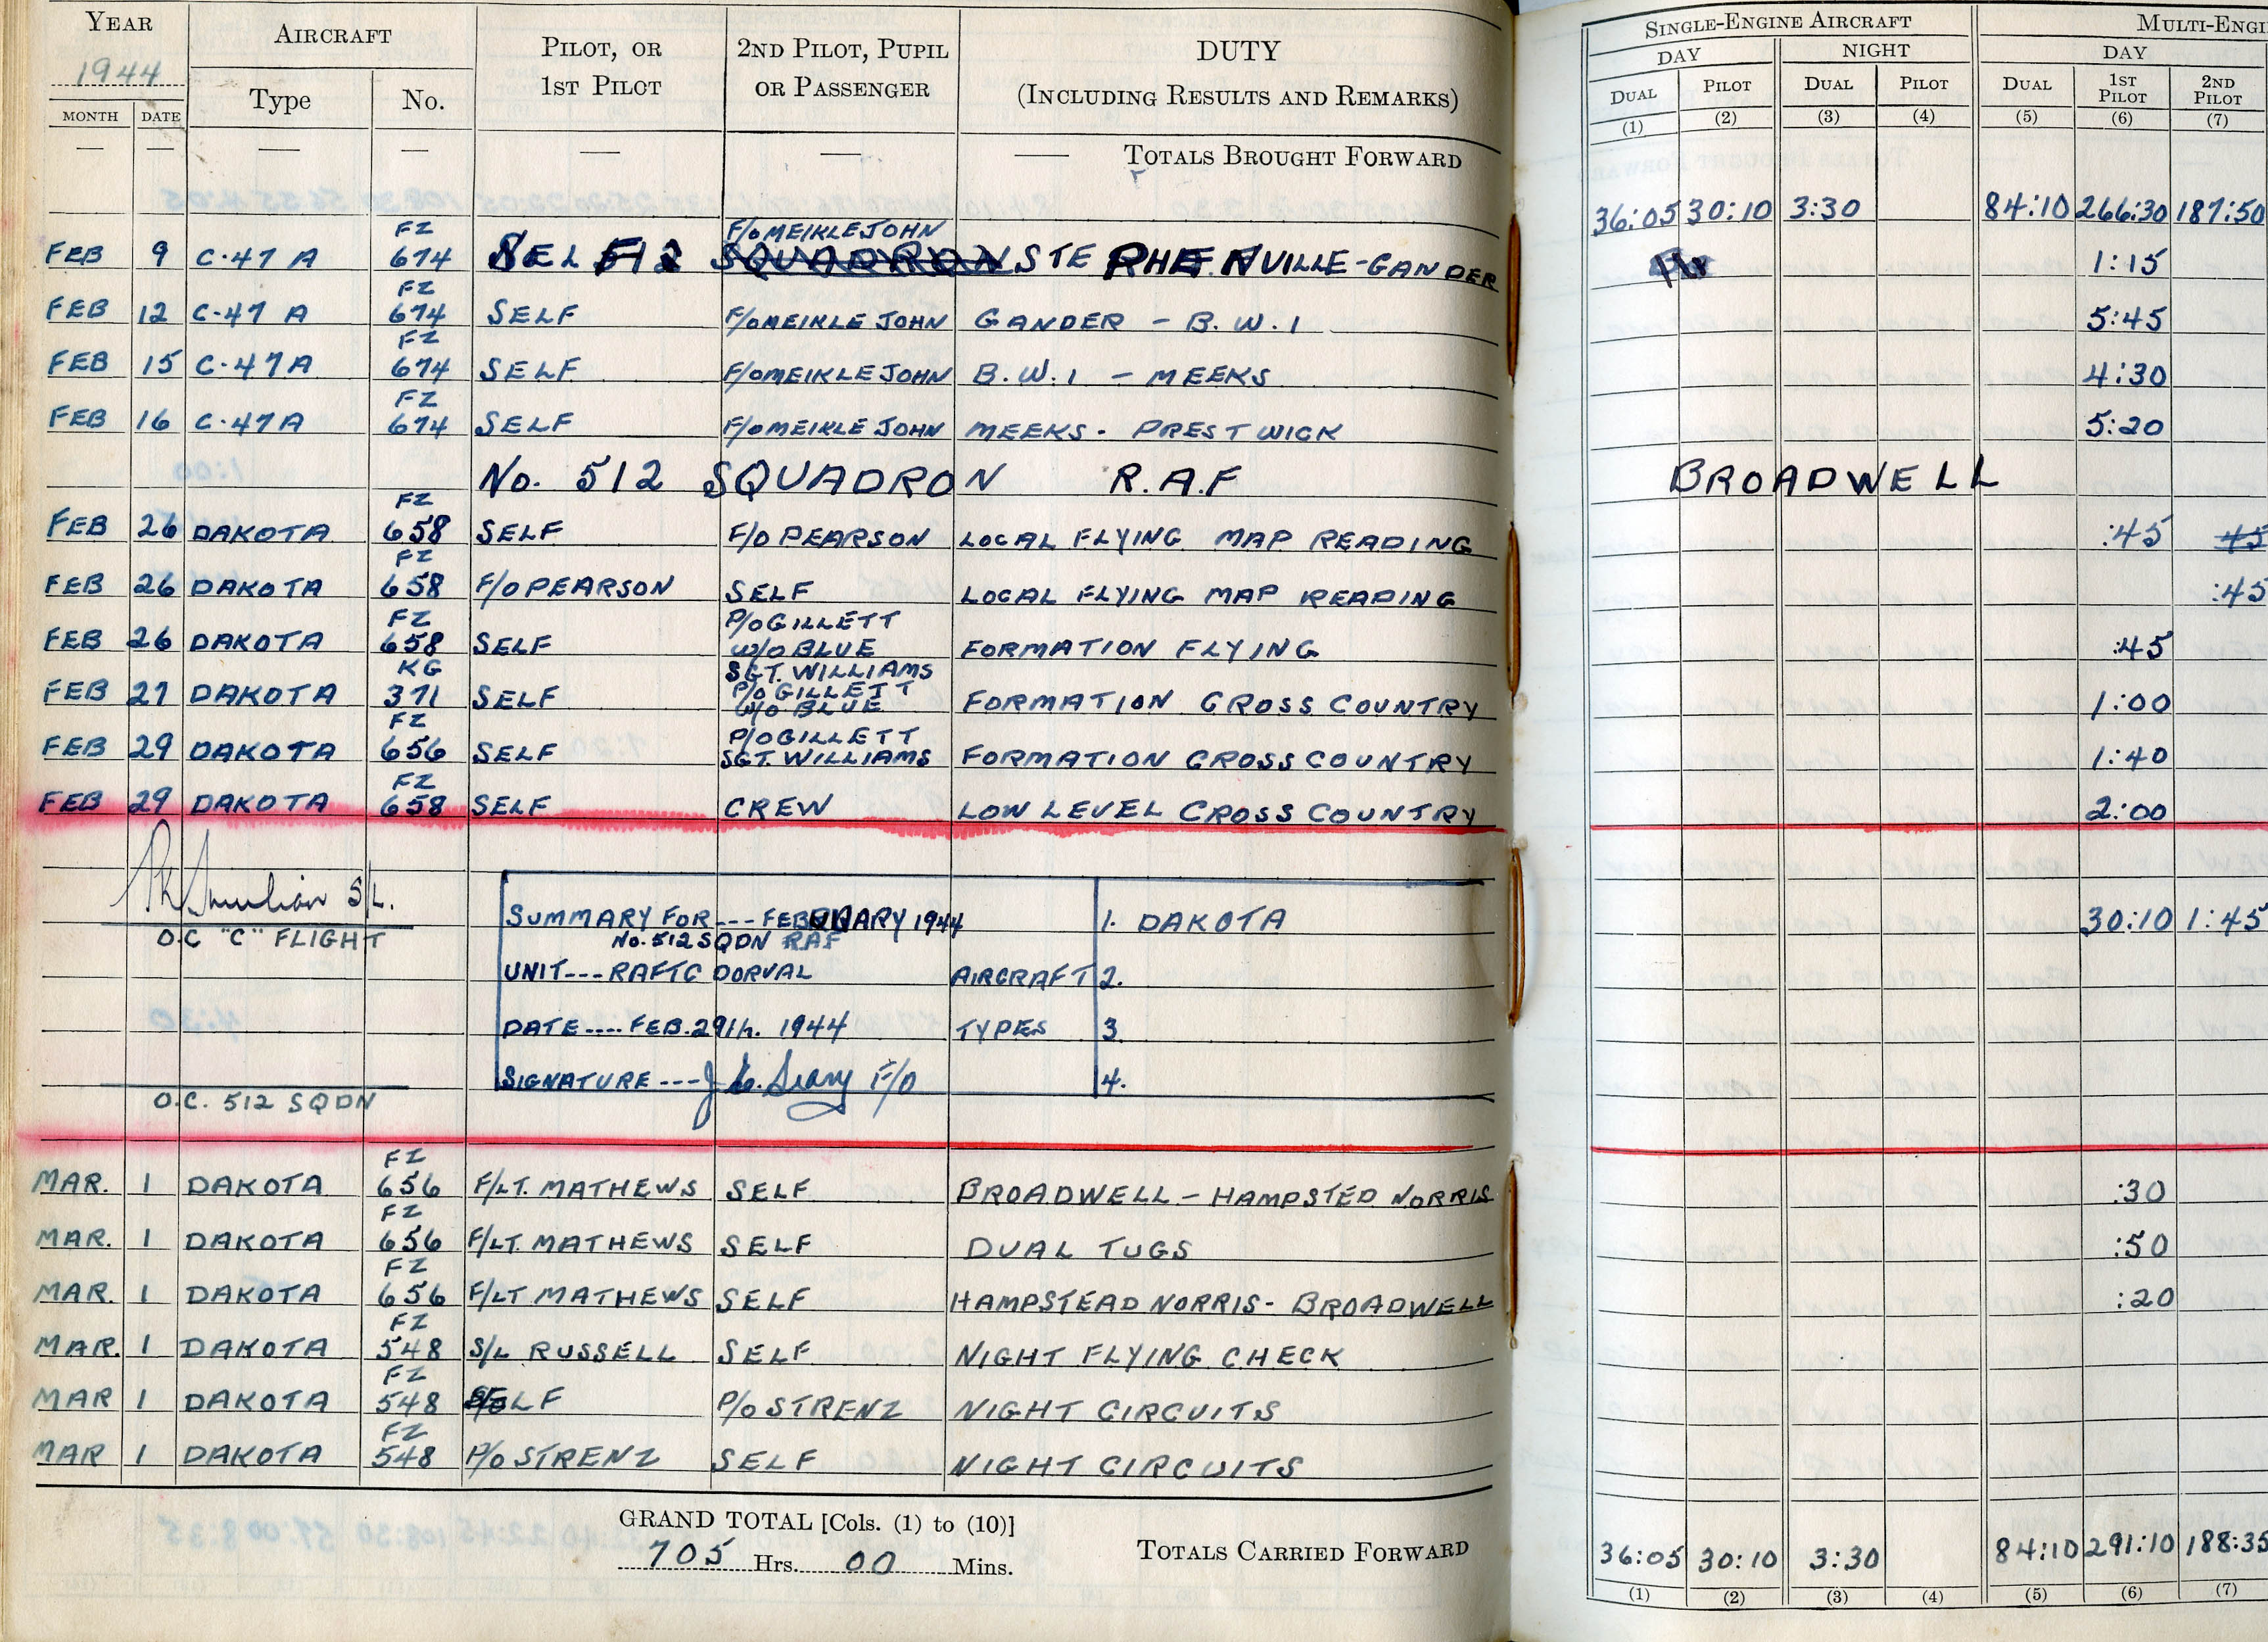 YEAR AIRCRAFT PILOT, OR 1ST PILOT 2ND PILOT, PUPIL OR PASSENGER DUTY (INCLUDING RESULTS AND REMARKS) SINGLE-ENGINE AIRCRAFT MULTI-ENGI
1944 Type No. DAY NIGHT DAY
MONTH DATE DUAL PILOT DUAL PILOT DUAL 1ST PILOT 2ND PILOT
(1) (2) (3) (4) (5) (6) (7)
— — — — — — — TOTALS BROUGHT FORWARD
36:05 30:10 3:30 84:10 266:30 187:50
FEB 9 C-47 A FZ 674 SELF 512 SQUADRON F/O MEIKLEJOHN STEPHENVILLE-GANDER 1:15
FEB 12 C-47 A FZ 674 SELF F/O MEIKLEJOHN GANDER - B.W.1 5:45
FEB 15 C-47A FZ 674 SELF F/O MEIKLEJOHN B.W.1 - MEEKS 4:30
FEB 16 C-47A FZ 674 SELF F/O MEIKLEJOHN MEEKS - PRESTWICK 5:20
No. 512 SQUADRON R.A.F BROADWELL
FEB 26 DAKOTA FZ 658 SELF F/O PEARSON LOCAL FLYING MAP READING :45 45
FEB 26 DAKOTA FZ 658 F/O PEARSON SELF LOCAL FLYING MAP READING :45
FEB 26 DAKOTA FZ 658 SELF P/O GILLETT W/O BLUE FORMATION FLYING :45
FEB 27 DAKOTA KG 371 SELF SGT. WILLIAMS P/O GILLETT W/O BLUE FORMATION CROSS COUNTRY 1:00
FEB 29 DAKOTA FZ 656 SELF P/O GILLETT SGT. WILLIAMS FORMATION CROSS COUNTRY 1:40
FEB 29 DAKOTA FZ 658 SELF CREW LOW LEVEL CROSS COUNTRY 2:00
S/L.
O.C "C" FLIGHT
SUMMARY FOR --- FEBRUARY 1944 1. DAKOTA 30:10 1:45
No. 512 SQDN RAF
UNIT --- RAFTC DORVAL AIRCRAFT 2.
DATE ---- FEB. 29th. 1944 TYPES 3.
SIGNATURE --- F/O 4.
O.C. 512 SQDN
MAR. 1 DAKOTA FZ 656 F/LT. MATHEWS SELF BROADWELL - HAMPSTED NORRIS :30
MAR. 1 DAKOTA FZ 656 F/LT. MATHEWS SELF DUAL TUGS :50
MAR. 1 DAKOTA FZ 656 F/LT MATHEWS SELF HAMPSTEAD NORRIS - BROADWELL :20
MAR. 1 DAKOTA FZ 548 S/L RUSSELL SELF NIGHT FLYING CHECK
MAR 1 DAKOTA FZ 548 SELF P/O STRENZ NIGHT CIRCUITS
MAR 1 DAKOTA FZ 548 P/O STRENZ SELF NIGHT CIRCUITS
GRAND TOTAL [Cols. (1) to (10)]
705 Hrs. 00 Mins. TOTALS CARRIED FORWARD 36:05 30:10 3:30 84:10 291:10 188:35
(1) (2) (3) (4) (5) (6) (7)